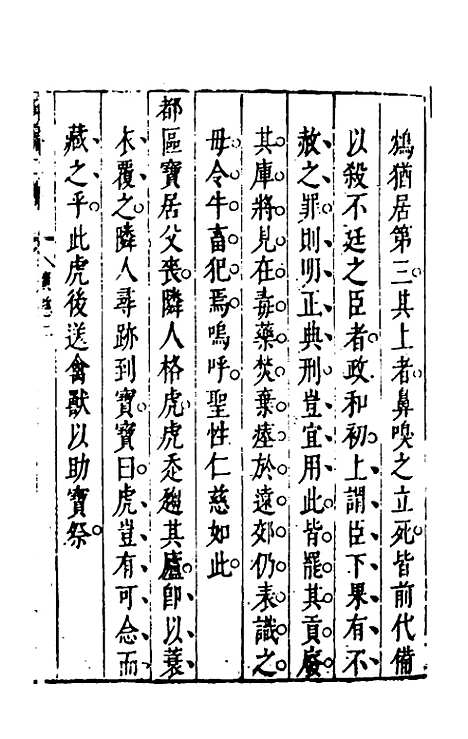 鴆猶居第三其上者鼻嗅之立死皆前代備
以殺不廷之臣者政和初上謂臣下果有不
赦之罪則明正典刑豈宜用此皆罷其貢廢
其庫將見在毒藥焚棄瘞於遠郊仍表識之
毋令牛畜犯焉嗚呼聖性仁慈如此
都區寶居父喪隣人格虎虎走趨其廬卽以蓑
衣覆之隣人尋跡到寶寶曰虎豈有可念而
藏之乎此虎後送禽獸以助寶祭